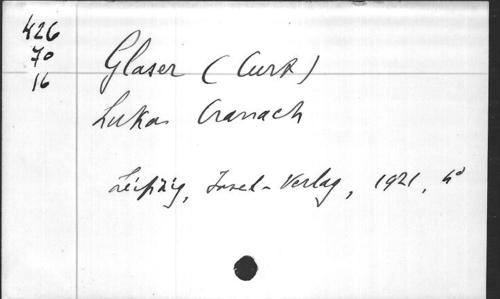 426
70
16
Glaser (Curt)
Lukas Cranach
Leipzig, Insel-Verlag, 1921, 4°